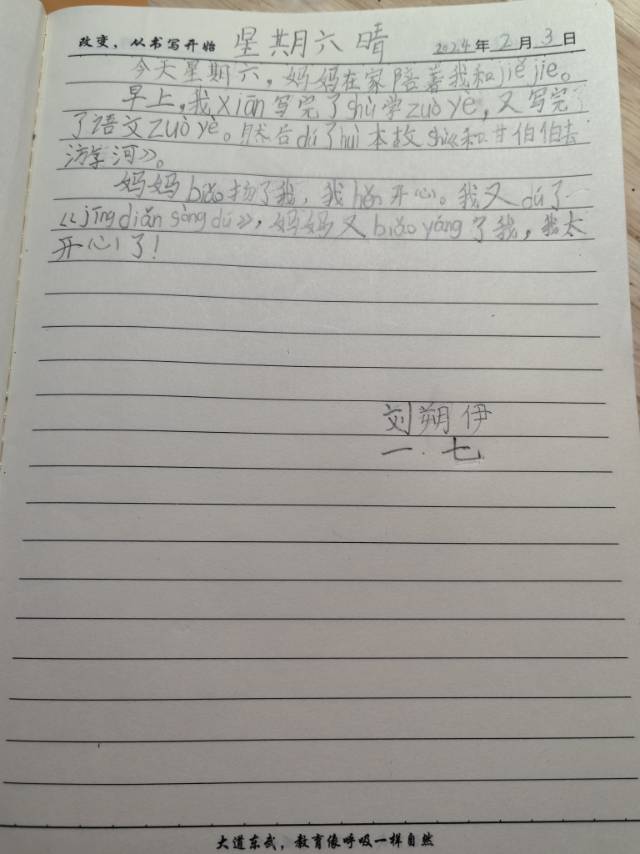 改变,从书写开始 星期六 晴 2024年2月3日
今天星期六,妈妈在家陪着我和jiě jie。
早上,我xiān写完了shù学zuò yè,又写完
了语文zuò yè。然后dú了huì本故shì《和甘伯伯去
游河》。
妈妈biǎo扬了我,我hěn开心。我又dú了
《jīng diǎn sòng dú》,妈妈又biǎo yáng了我,我太
开心了!
刘朔伊
一.七
大道东武,教育像呼吸一样自然